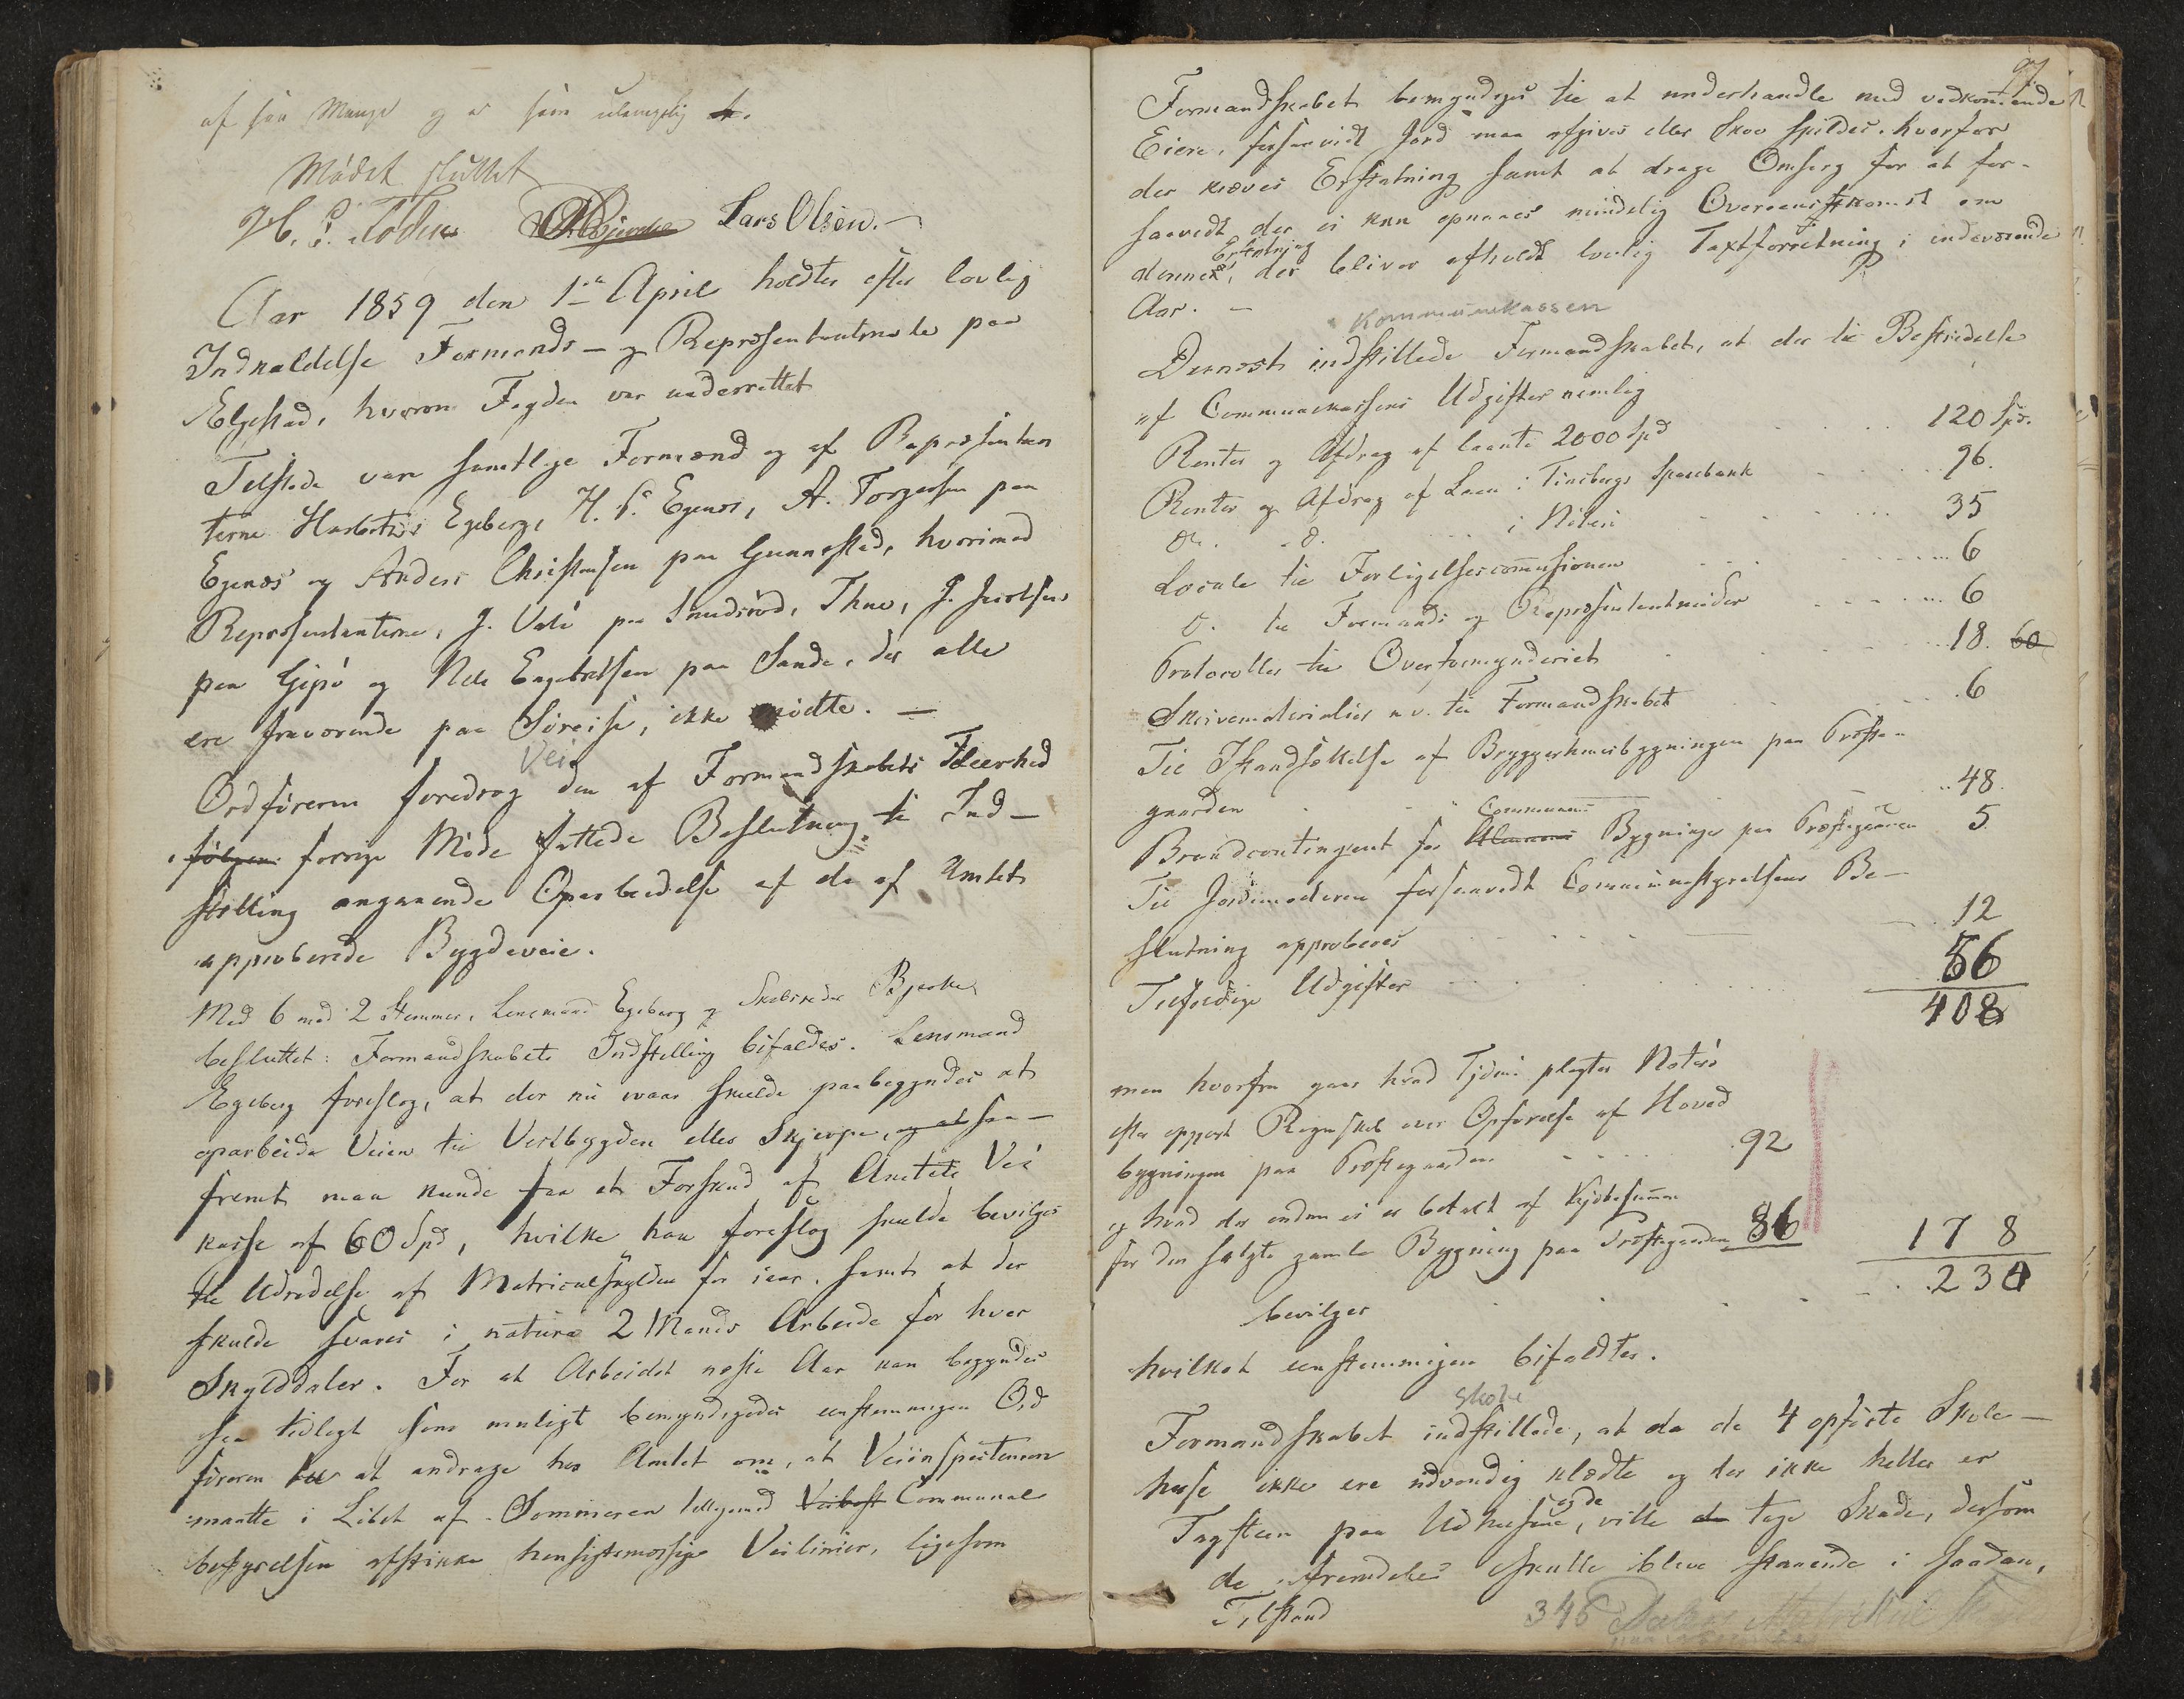 af saa Mange og er saa
Mødet sluttet
Lars Olsen.
Aar 1859 den 1ste April holdtes efter lovlig
Indkaldelse Formands- og Repræsentantmøde paa
Elgestad, hvorom Fogden var underrettet
Tilstede var samtlige Formænd og af Repræsentan
terne Egeberg, H. P. Egenæs, A. Torgersen paa
Egenæs og Anders Christensen paa Gunnestad, hvorimod
Repræsentanterne, J. paa Smidsrød, Thue, J. Jacobsen
paa Gipø og Nils Engebretsen paa Sande, der alle
ere fraværende paa Søreise, ikke mødte. —
Vei
Ordføreren foredrog den af Formandskabets Fleerhed
i følgen forrige Møde fattede Beslutning til Ind-
stilling angaaende Oparbeidelse af de af Amtet
approberede Bygdeveie.
Med 6 mod 2 Stemmer, Lensmand Egeberg og Skibsreder Bjerke,
besluttet: Formandskabets Indstilling bifaldes. Lensmand
Egeberg foreslog, at der nu iaar skulde paabegyndes at
oparbeide Veien til Vestbygden eller Skjerpe, og at saa-
fremt man kunde faa et Forskud af Amtets Vei
kasse af 60 Spd, hvilke han foreslog skulde bevilges
til Udredelse af Matriculskylden for iaar, samt at der
skulde svares i natura 2 Mands Arbeide for hver
Skylddaler. For at Arbeidet næste Aar kan begyndes
saa tidligt som muligt bemyndigedes eenstemmigen Ord
føreren til at andrage hos Amtet om, at Veiinspecteuren
maatte i Løbet af Sommeren tilligemed Communal
bestyrelsen afstikke hensigtsmæssige Veilinier, ligesom
97.
Formandskabet bemyndiges til at underhandle med vedkommende
Eiere, forsaavidt Jord maa afgives eller Skov spildes, hvorfor
der kræves Erstatning samt at drage Omsorg for at for-
saavidt der ei kan opnaaes mindelig Overeenskomst om
Erstatning
denne, der bliver afholdt lovlig Taxtforretning i indeværende
Aar. —
Kommunekassen
Dernæst indstillede Formandskabet, at der til Bestridelse
af Communekassens Udgifter nemlig
Renter og Afdrag af laante 2000 Spd 120 Spd.
Renter og Afdrag af Laan i Tønsbergs Sparebank 96.
Do. do. i Nøterø 35
Locale til Forligelsescommissionen 6
do. til Formands og Repræsentantmøder 6
Protocoller til Overformynderiet 18. 60
Skrivematerialier m.v. til Formandskabet 6
Til Istandsættelse af Bryggerhuusbygningen paa Præste-
gaarden 48.
Communens
Brandcontingent for Bygninger paa Præstegaarden 5
Til Jordemoderen forsaavidt Communestyrelsens Be-
slutning approberes 12
Tilfældige Udgifter 56
408
men hvorfra gaar hvad Tjømø pligter Nøterø
efter opgjort Regnskab over Opførelse af Hoved
bygningen paa Præstegaarden 92
og hvad der endnu ei er betalt af Kjøbesummen
for den solgte gamle Bygning paa Præstegaarden 86 178
bevilges 230
hvilket eenstemmigen bifaldtes.
Skole
Formandskabet indstillede, at da de 4 opførte Skole-
huse ikke ere udvendig klædte og der ikke heller er
Tagsteen paa Udhusene, ville de tage Skade, dersom
de fremdeles skulle blive staaende i saadan,
Tilstand
346